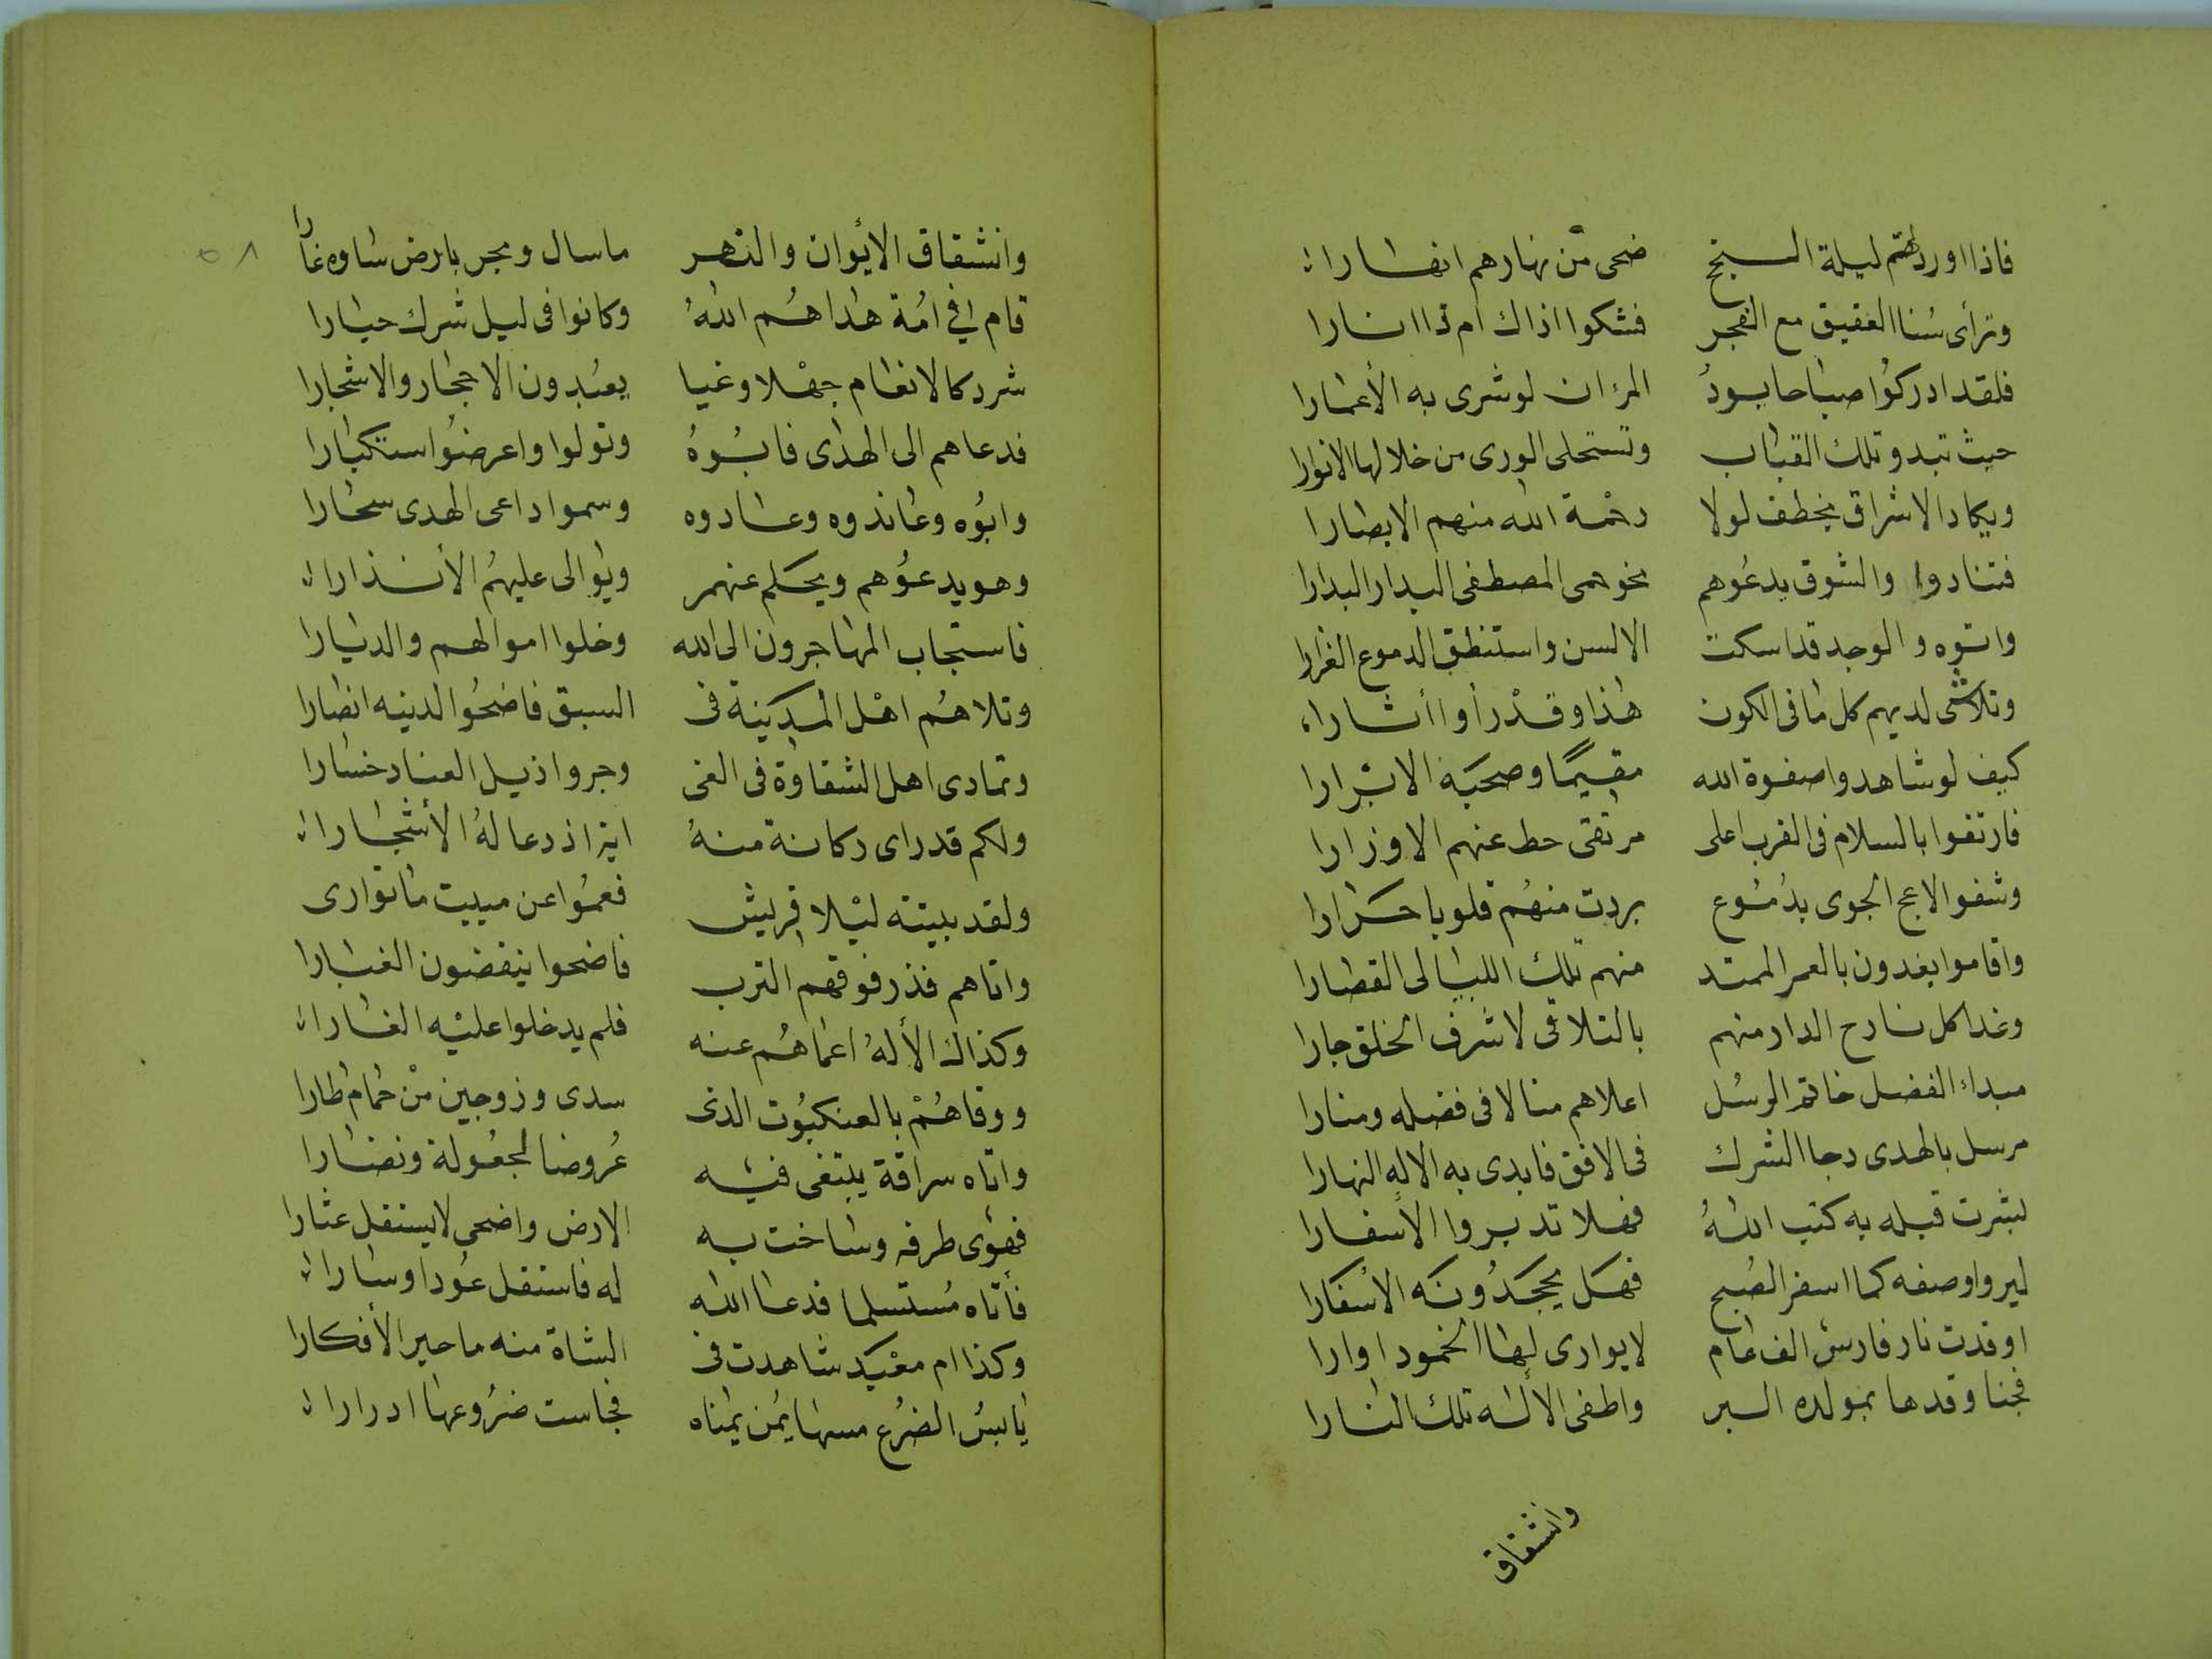 فاذا اوردتهم ليلة السبح ضحى من نهارهم انهارا
وترأى سنا العقيق مع الفجر فشكوا اذاك ام ذا انارا
فلقد ادركوا صباحا يود المرء ان لو شرى به الأعمارا
حيث تبدو تلك القباب وتستحلى الورى من خلالها الانوارا
ويكاد الاشراق يخطف لولا رحمة الله منهم الابصارا
فتنادوا والشوق يدعوهم نحو حمى المصطفى البدار البدارا
واتوه والوجد قد اسكت الالسن واستنطق الدموع الغزارا
وتلاشى لديهم كل ما فى الكون هذا وقد رأوا أثارا
كيف لو شاهدوا صفوة الله مقيما وصحبه الابرارا
فارتقوا بالسلام فى القرب اعلى مرتقى حط عنهم الاوزارا
وشفوا لاعج الجوى بدموع بردت منهم قلوبا حرارا
واقاموا يفدون بالعمر الممتد منهم تلك الليالى القصارا
وغدا كل نازح الدار منهم بالتلاقى لاشرف الخلق جارا
مبداء الفضل خاتم الرسل اعلاهم منالا فى فضله ومنارا
مرسل بالهدى دجا الشرك فى الافق فابدى به الاله النهارا
بشرت قبله به كتب الله فهلا تدبروا الأسفارا
ليروا وصفه كما اسفر الصبح فهل يجحدونه الأسفارا
اوقدت نار فارس الف عام لا يوارى لها الخمود اوارا
فخبا وقدها بمولده السر واطفى الأله تلك النارا
وانشقاق
وانشقاق الأيوان والنهر ما سال وبحر بارض ساوه غارا
قام فى امة هداهم الله وكانوا فى ليل شرك حيارا
شرد كالانعام جهلا وغيا يعبدون الاحجار والاشجارا
فدعاهم الى الهدى فابوه وتولوا واعرضوا استكبارا
وابوه وعاندوه وعادوه وسموا داعى الهدى سحارا
وهو يدعوهم ويحلم عنهم ويوالى عليهم الأنذارا
فاستجاب المهاجرون الى الله وخلوا اموالهم والديارا
وتلاهم اهل المدينة فى السبق فاضحوا لدينه انصارا
وتمادى اهل الشقاوة فى الغى وجروا ذيل العناد خسارا
ولكم قد راى ركانة منه اية اذ دعا له الأشجارا
ولقد بيتته ليلا قريش فعموا عن مبيت ما توارى
واتاهم فذر فوقهم الترب فاضحوا ينفضون الغبارا
وكذاك الأله اعماهم عنه فلم يدخلوا عليه الغارا
ووقاهم بالعنكبوت الذى سدى وزوجين من حمام طارا
واتاه سراقة يبتغى فيه عروضا مجعولة ونضارا
فهوى طرفه وساخت به الارض واضحى لا يستقل عثارا
فأتاه مستسلما فدعا الله له فاستقل عودا وسارا
وكذا ام معبد شاهدت فى الشاة منه ما حير الأفكارا
يابس الضرع مسها يمن يمناه فجاست ضروعها ادرارا
٥٨